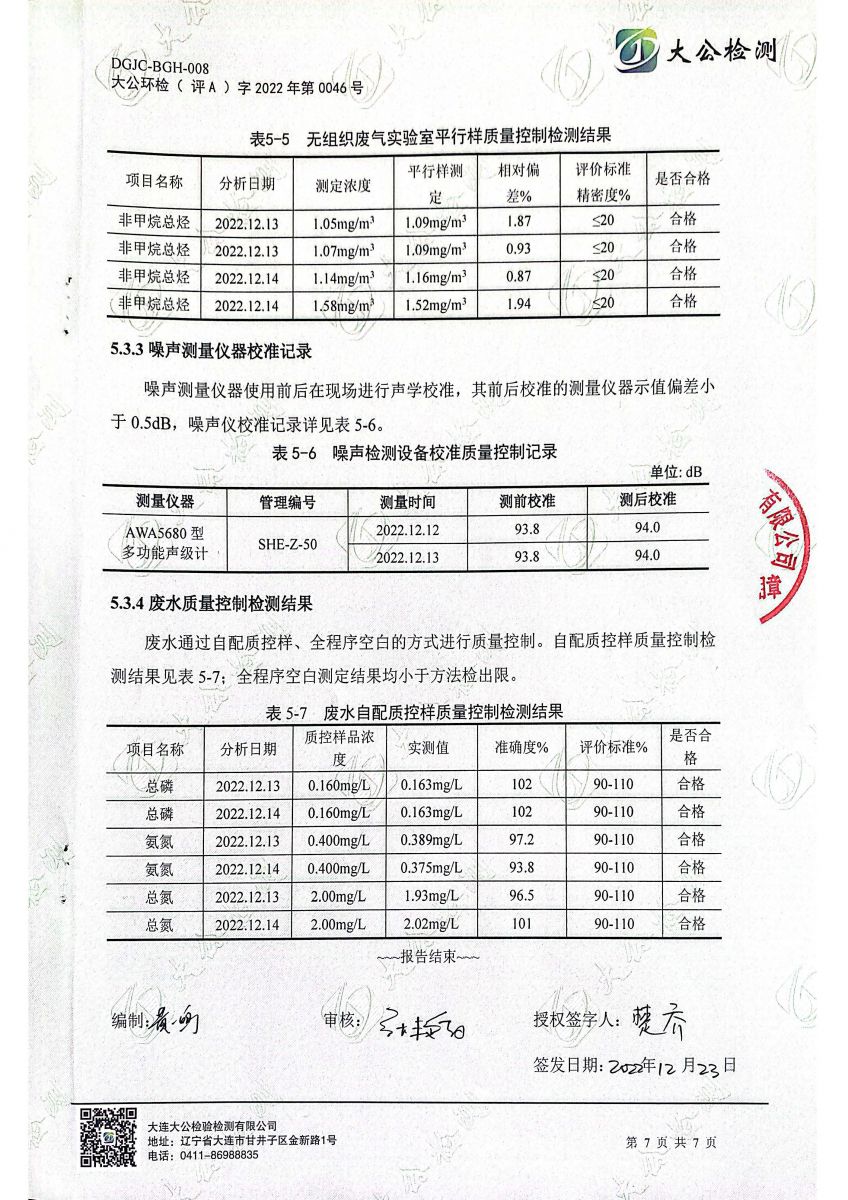 大公检测
DGJC-BGH-008
大公环检（ 评A ）字 2022 年第 0046 号
表5-5 无组织废气实验室平行样质量控制检测结果
项目名称 分析日期 测定浓度 平行样测定 相对偏差% 评价标准精密度% 是否合格
非甲烷总烃 2022.12.13 1.05mg/m³ 1.09mg/m³ 1.87 ≤20 合格
非甲烷总烃 2022.12.13 1.07mg/m³ 1.09mg/m³ 0.93 ≤20 合格
非甲烷总烃 2022.12.14 1.14mg/m³ 1.16mg/m³ 0.87 ≤20 合格
非甲烷总烃 2022.12.14 1.58mg/m³ 1.52mg/m³ 1.94 ≤20 合格
5.3.3 噪声测量仪器校准记录
噪声测量仪器使用前后在现场进行声学校准，其前后校准的测量仪器示值偏差小
于 0.5dB，噪声仪校准记录详见表 5-6。
表 5-6 噪声检测设备校准质量控制记录
单位: dB
测量仪器 管理编号 测量时间 测前校准 测后校准
AWA5680 型多功能声级计 SHE-Z-50 2022.12.12 93.8 94.0
2022.12.13 93.8 94.0
有限公司
5.3.4 废水质量控制检测结果
废水通过自配质控样、全程序空白的方式进行质量控制。自配质控样质量控制检
测结果见表 5-7；全程序空白测定结果均小于方法检出限。
表 5-7 废水自配质控样质量控制检测结果
项目名称 分析日期 质控样品浓度 实测值 准确度% 评价标准% 是否合格
总磷 2022.12.13 0.160mg/L 0.163mg/L 102 90-110 合格
总磷 2022.12.14 0.160mg/L 0.163mg/L 102 90-110 合格
氨氮 2022.12.13 0.400mg/L 0.389mg/L 97.2 90-110 合格
氨氮 2022.12.14 0.400mg/L 0.375mg/L 93.8 90-110 合格
总氮 2022.12.13 2.00mg/L 1.93mg/L 96.5 90-110 合格
总氮 2022.12.14 2.00mg/L 2.02mg/L 101 90-110 合格
~~~报告结束~~~
编制: 审核: 授权签字人: 楚乔
签发日期: 2022年12月23日
大连大公检验检测有限公司
地址：辽宁省大连市甘井子区金新路1号
电话：0411-86988835
第 7 页 共 7 页